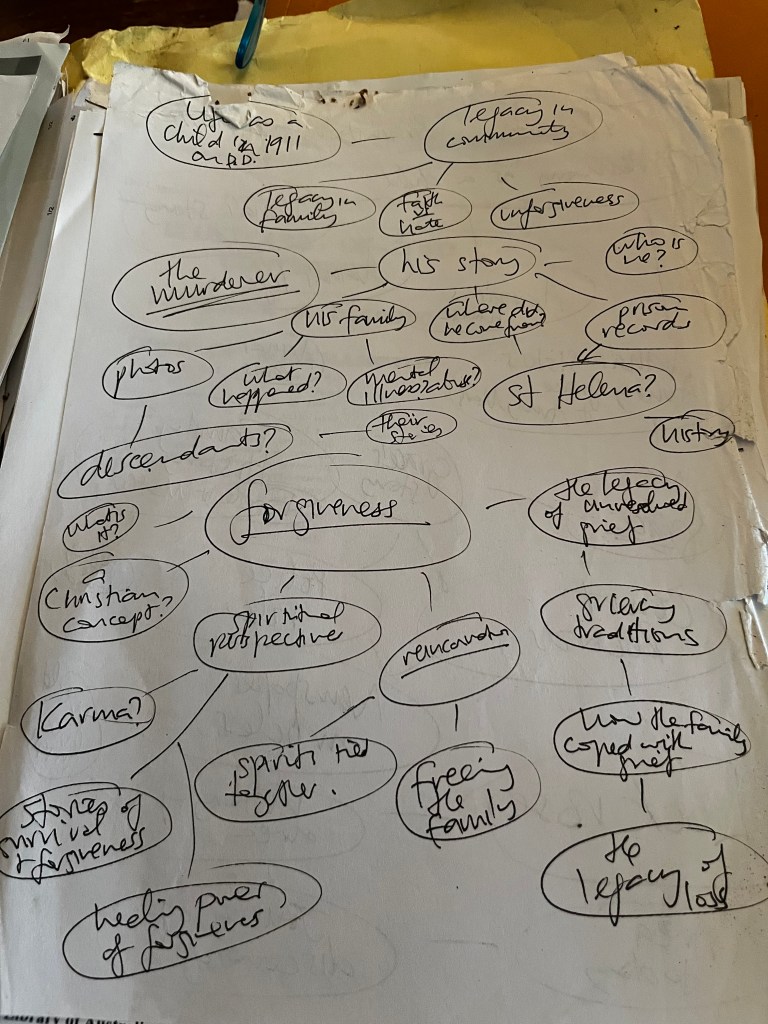 Life as a
child in 1911
on D.D.
legacy in
community
legacy in
family
faith
vs
hate
unforgiveness
the
murderer
his story
who is
he?
his family
where did
he come from
prison
records
photos
what
happened?
mental
illness/abuse?
St Helena?
history
descendants?
their
stories
forgiveness
what is
it?
the legacy
of unresolved
grief
a
Christian
concept?
spiritual
perspective
reincarnation
grieving
traditions
Karma?
spirits tied
together.
freeing
the
family
how the family
coped with
grief
stories of
survival
& forgiveness
healing power
of forgiveness
the
legacy of
loss
Library of